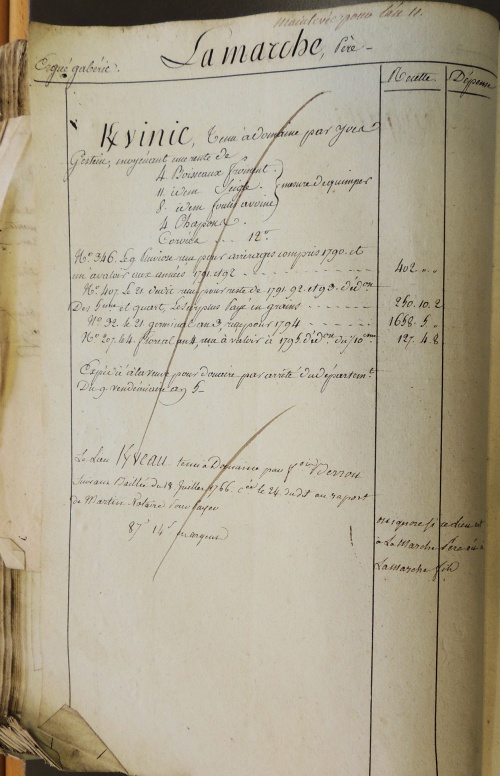 mainlevée pour l'an 11.
Ergué gaberic.
Lamarche, Père
Recette
Dépense
K/vinic, Tenu à domaine par Yves
Gostein, moyénant une rente de
4 Boisseaux froment
11. idem Seigle.
8. idem foulé avoine
mesure de quimper
4 Chapons.
Corvées ... 12#
No. 346. Le 9 reçu pour arrérages compris 1790. et
un à valoir aux années 1791 et 92
402 " "
No. 407. Le 21 reçu pour reste de 1791. 92 et 93. déd.on
Des 5eme et quart, payé en grains
250. 10. 2
No. 32. le 21 germinal an 3, reçu pour 1794
1658. 5. "
No. 207. le 4. floreal an 4, reçu à valoir à 1795. déd.on du 10eme
127. 4. 8
Expédié à la veuve pour douaire par arrêté du départem.t
Du 9. vendémiaire an 5
Le Lieu K/veau. tenu à Domaine par Derrou
suivant Baillée du 18 Juillet 1766. le 24. dudt. au raport
de Martin Notaire Pour payer
87# 14s en argent
on ignore si ce lieu est
à La Marche Père ou à
Lamarche fils